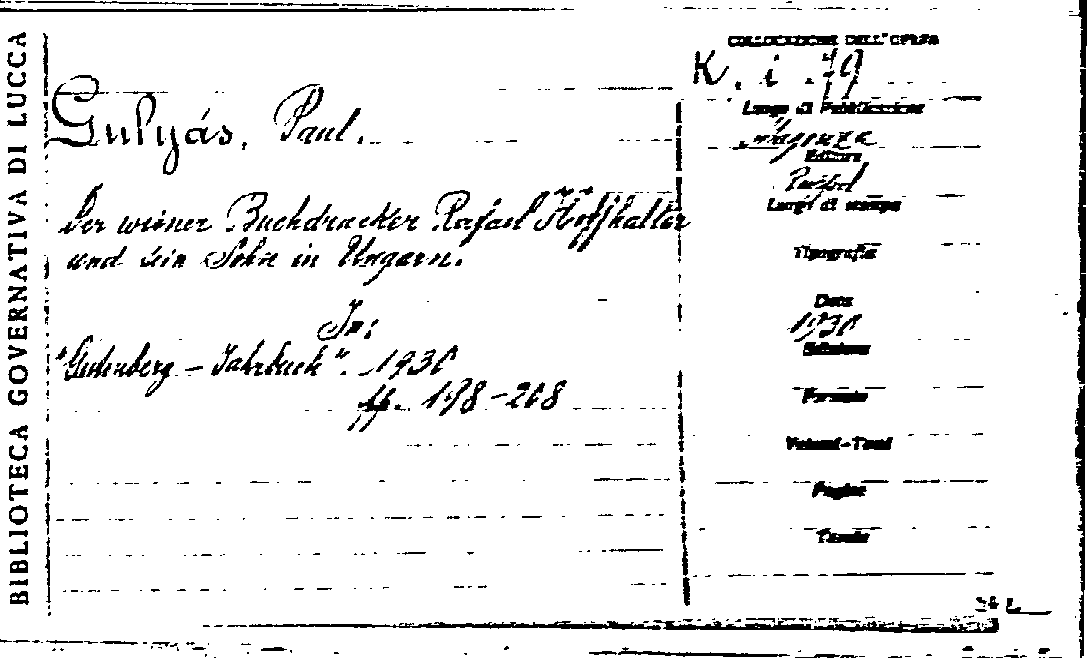 BIBLIOTECA GOVERNATIVA DI LUCCA
Gulyás, Paul.
Der wiener Buchdrucker Rafael Hoffhalter
und sein Sohn in Ungarn.
In:
"Gutenberg - Jahrbuch". 1930
pp. 198-208
COLLOCAZIONE DELL'OPERA
K. i. 79
Luogo di Pubblicazione
Magonza
Editore
Luogo di stampa
Tipografia
Data
1930
Edizione
Formato
Volumi-Tomi
Pagine
Tavole